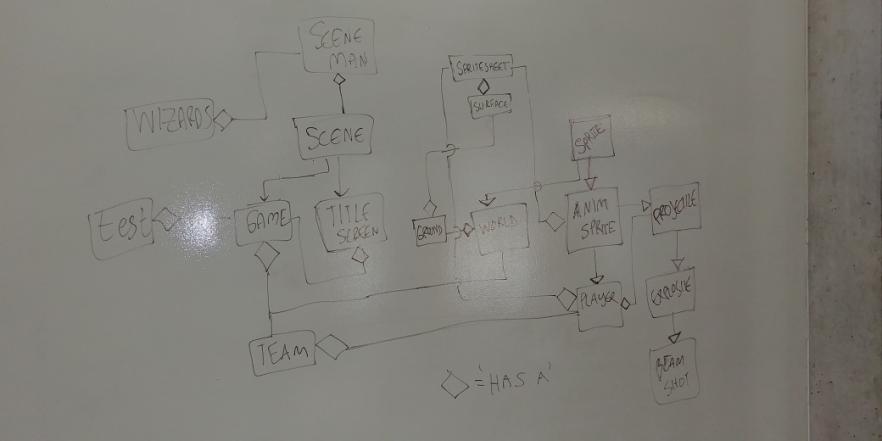 SCENE
MAIN
SPRITESHEET
SURFACE
WIZARDS
SCENE
SPRITE
test
GAME
TITLE
SCREEN
GROUND
WORLD
ANIM
SPRITE
PROJECTILE
PLAYER
EXPLOSIVE
TEAM
BEAM
SHOT
='HAS A'